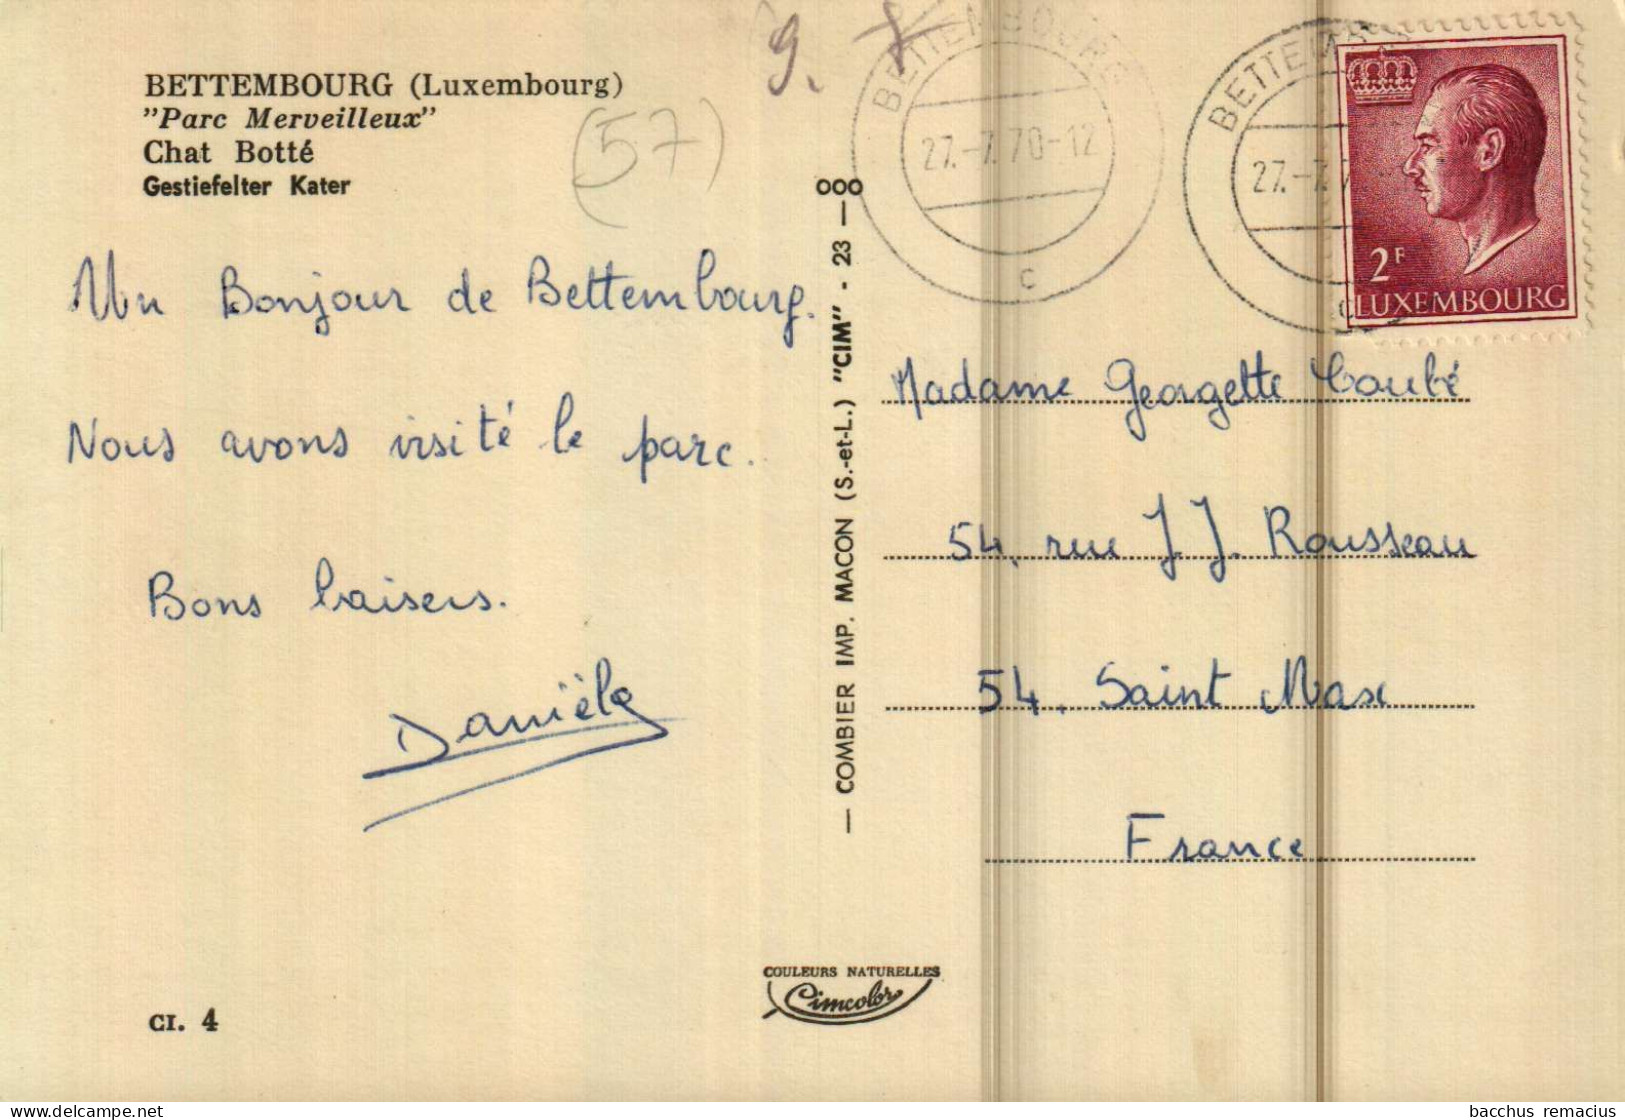 BETTEMBOURG (Luxembourg)
"Parc Merveilleux"
Chat Botté
Gestiefelter Kater
(57)
9.
Un Bonjour de Bettembourg.
Nous avons visité le parc.
Bons baisers.
Danièle
CI. 4
— COMBIER IMP. MACON (S.-et-L.) "CIM" - 23 — 000
COULEURS NATURELLES
Cimcolor
BETTEMBOURG
27.-7.70-12
C
BETTEMB
27.-7.7
C
2F
LUXEMBOURG
Madame Georgette Coubé
54, rue J.J. Rousseau
54. Saint Max
France
bacchus remacius